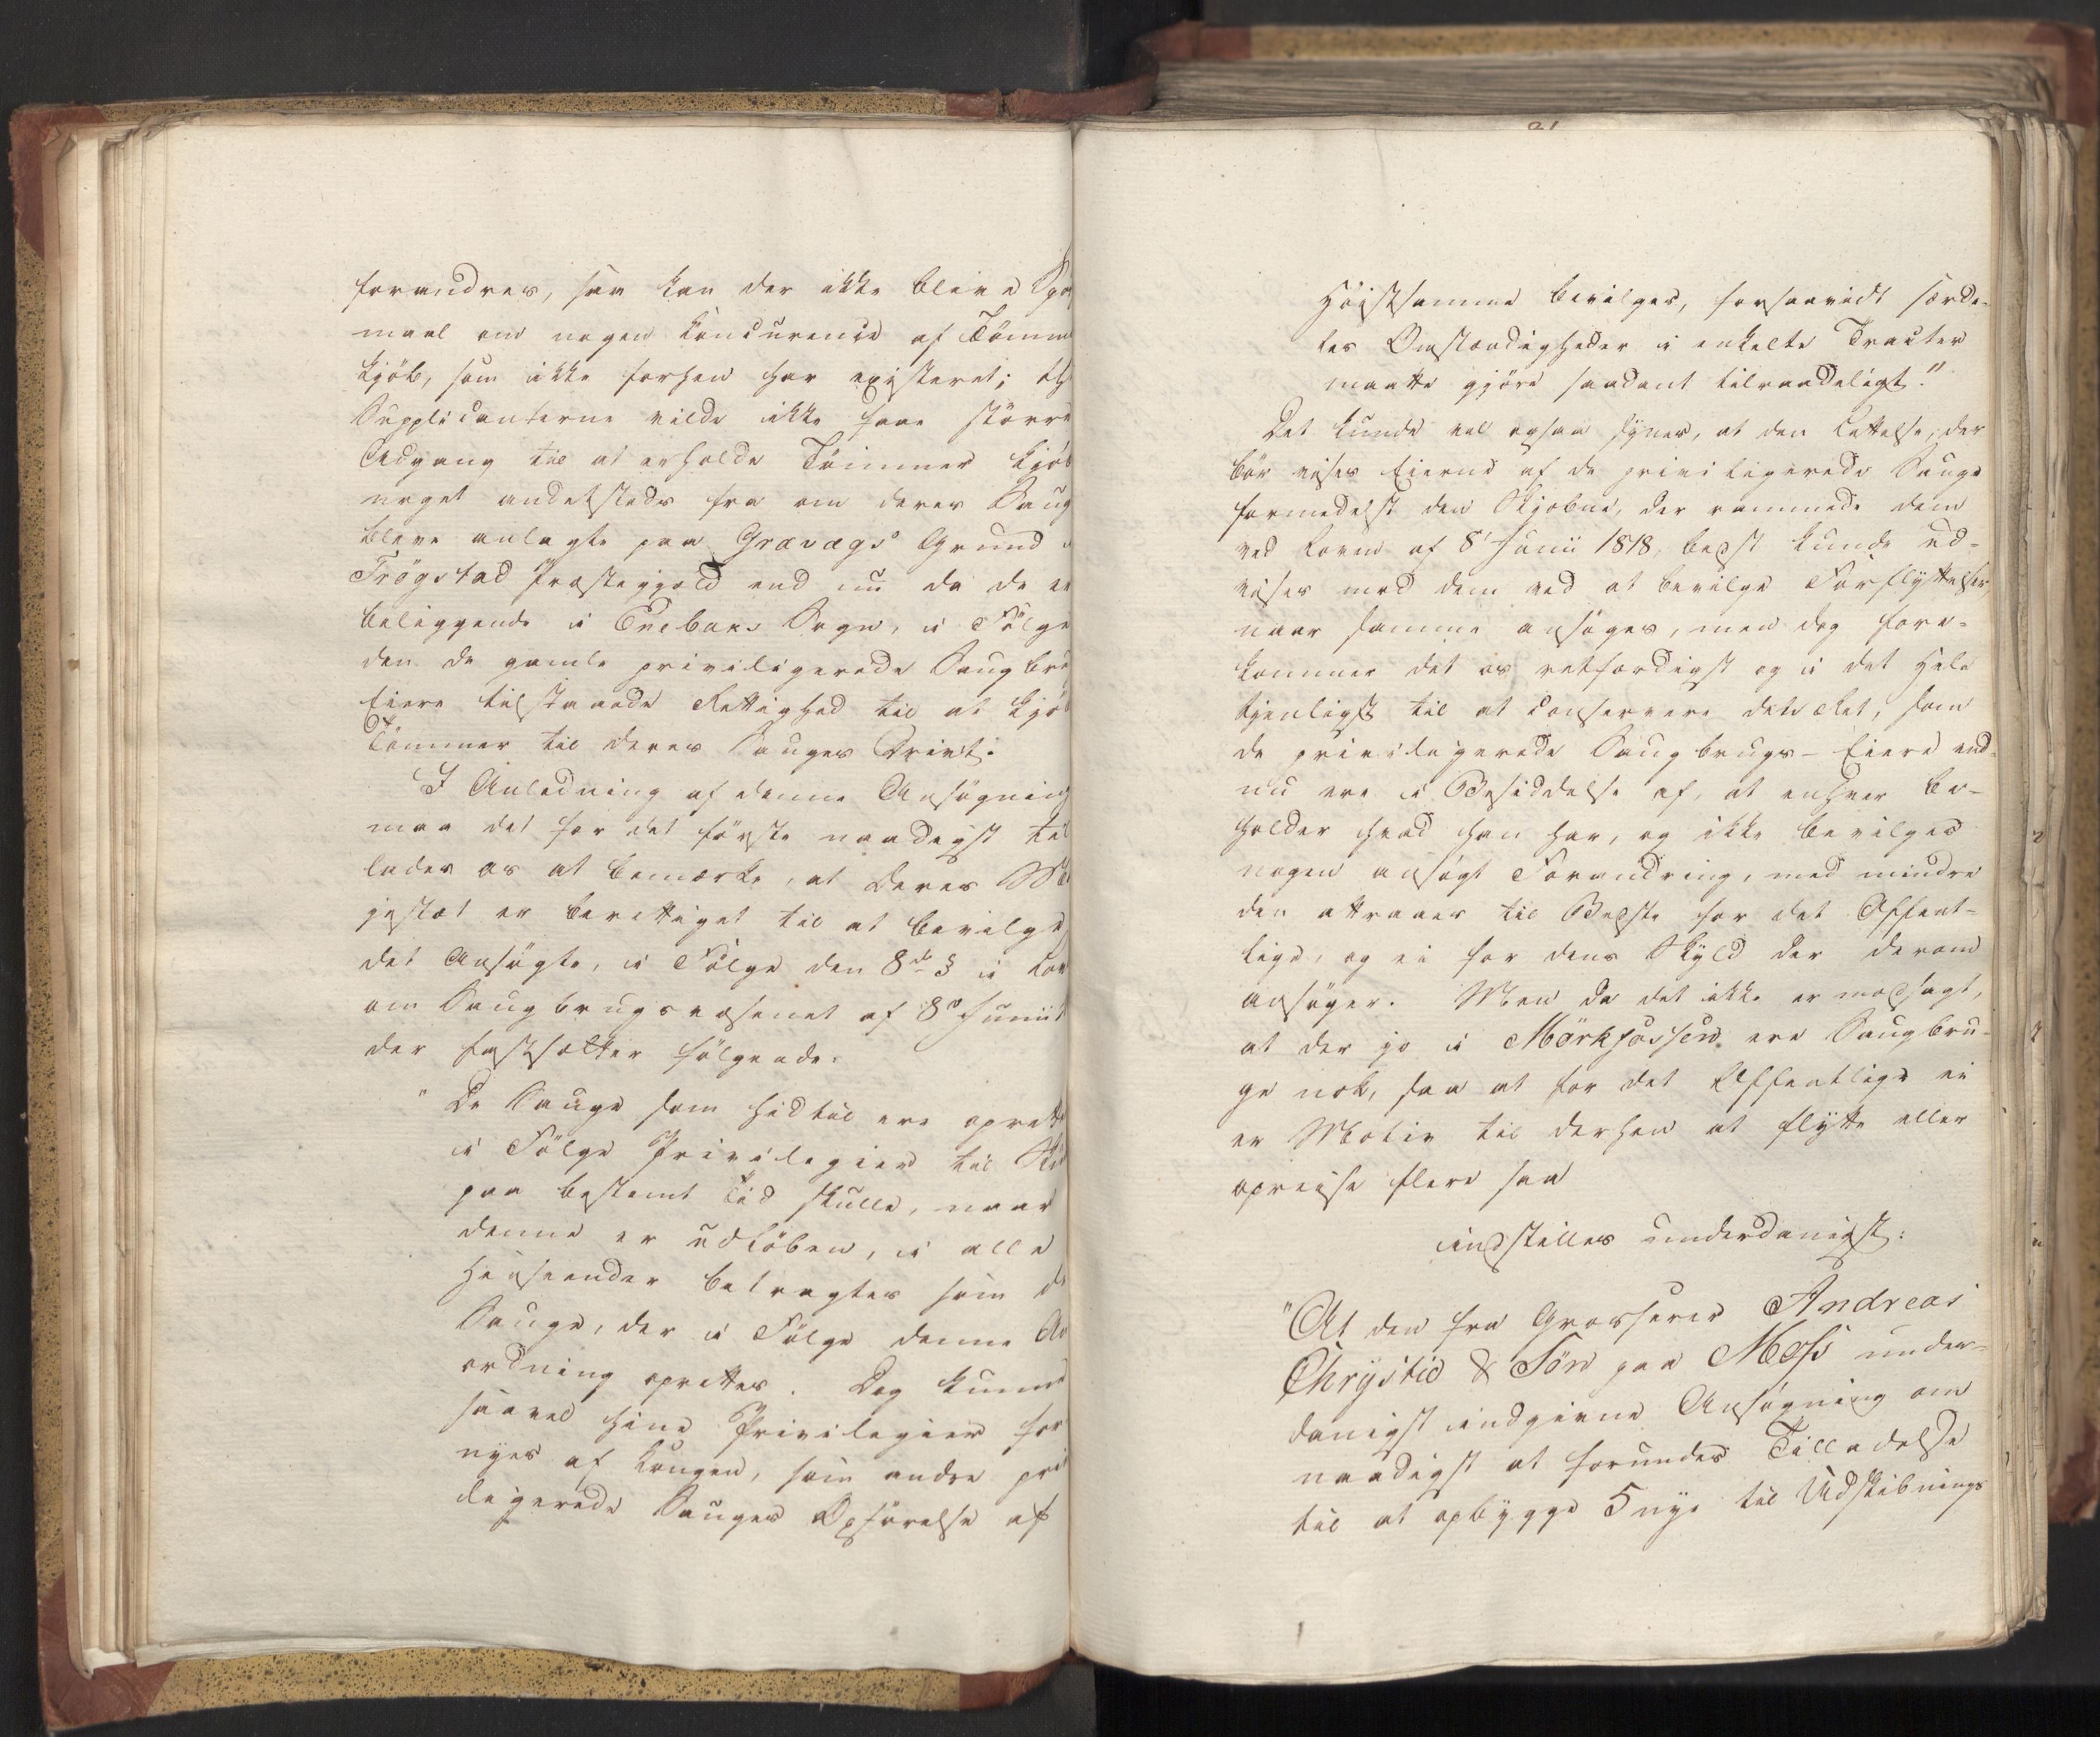 forandres, saa kan der ikke blive Spör
maal om nogen Concurence af Tömme
kjöb, som ikke forhen har existeret; th
Supplicanterne vilde ikke faae större
Adgang til at erholde Tömmer kjöb
noget andetsteds fra om deres Saug
bleve anlagte paa Grævægs Grund i
Trögstad Præstegjæld end nu da de er
beliggende i Enebaks Sogn, i Fölge
den de gamle priviligerede Saugbru
Eiere tilstaaede Rettighed til at kjöb
Tömmer til deres Sauges Drivt.
I Anledning af denne Ansögning
maa det for det förste naadigst til
lades os at bemærke, at Deres Ma
jestæt er berettiget til at bevilge
det Ansögte, i Fölge den 8de § i Lov
om Saugbrugsvæsenet af 8de Junii
der fastsætter fölgende:
"De Sauge som hidtil ere oprette
i Fölge Privilegier til Ski
paa bestemt Tid skulle, naar
denne er udlöben, i alle
Henseender betragtes som de
Sauge, der i Fölge denne An
ordning oprettes. Dog kunne
saavel hine Privilegier for
nyes af Kongen, som andre pri
legerede Sauges Opförelse af
21
Höistsamme bevilges, forsaavidt særde-
les Omstændigheder i enkelte Tracter
maatte gjöre saadant tilraadeligt."
Det kunde vel ogsaa synes, at den Lettelse, der
bör vises Eierne af de priviligerede Sauge
formedelst den Skjebne, der rammede dem
ved Loven af 8' Junii 1818, bedst kunde ud-
vises mod dem ved at bevilge Forflyttelser
naar samme ansöges, men dog fore-
kommer det os retfærdigst og i det Hele
tjenligst til at conservere dets Ret, som
de priviligerede Saugbrugs-Eiere end-
nu ere i Besiddelse af, at enhver be-
holder hvad han har, og ikke bevilges
nogen ansögt Forandring, med mindre
den attraaes til Bedste for det Offent-
lige, og ei for dens Skyld der derom
ansöger. Men da det ikke er modsagt,
at der jo i Mörkfossen ere Saugbru-
ge nok, saa at for det Offentlige ei
er Motiv til derhen at flytte eller
opreise flere saa
indstilles underdanigst:
"At den fra Grosserer Andreas
Chrystie & Sön paa Moss under-
danigst indgivne Ansögning om
naadigst at forundes Tilladelse
til at opbygge 5 nye til Udskibnings